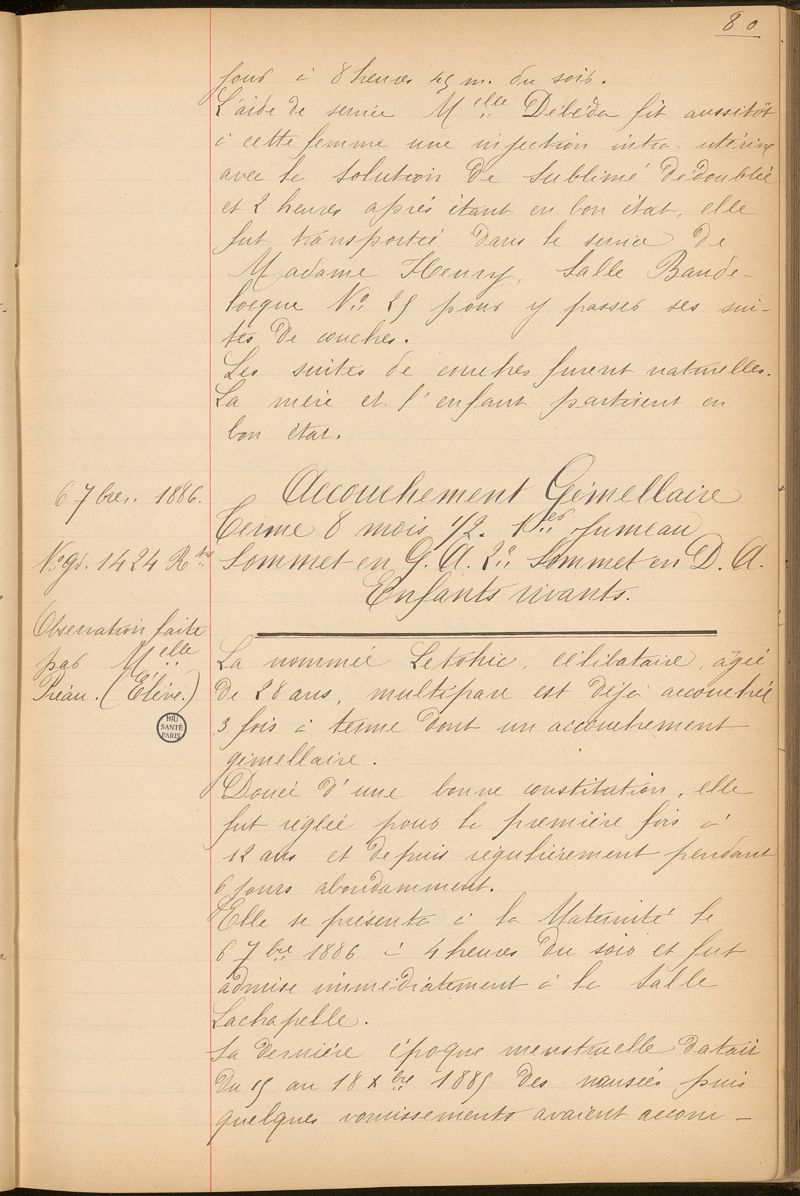 80
jour à 8 heures 45 m. du soir.
L'aide de service Melle Débéda fit aussitôt
à cette femme une injection intra-utérine
avec la solution de sublimé dédoublée
et 2 heures après étant en bon état, elle
fut transportée dans le service de
Madame Henry, Salle Baude-
locque No 25 pour y passer ses sui-
tes de couches.
Les suites de couches furent naturelles.
La mère et l'enfant partirent en
bon état.
6 7bre. 1886.
No gl. 1424 Rtre
Observation faite
par Melle
Préau. (Elève.)
BIU
SANTÉ
PARIS
Accouchement Gémellaire
Terme 8 mois 1/2. 1er Jumeau
Sommet en G. A. 2e Sommet en D. A.
Enfants vivants.
La nommée Letohic, célibataire, âgée
de 28 ans, multipare est déjà accouchée
3 fois à terme dont un accouchement
gémellaire.
Douée d'une bonne constitution, elle
fut réglée pour la première fois à
12 ans et depuis régulièrement pendant
6 jours abondamment.
Elle se présenta à la Maternité le
6 7bre 1886 à 4 heures du soir et fut
admise immédiatement à la Salle
Lachapelle.
Sa dernière époque menstruelle datait
du 15 au 18 Xbre 1885 des nausées puis
quelques vomissements avaient accom-